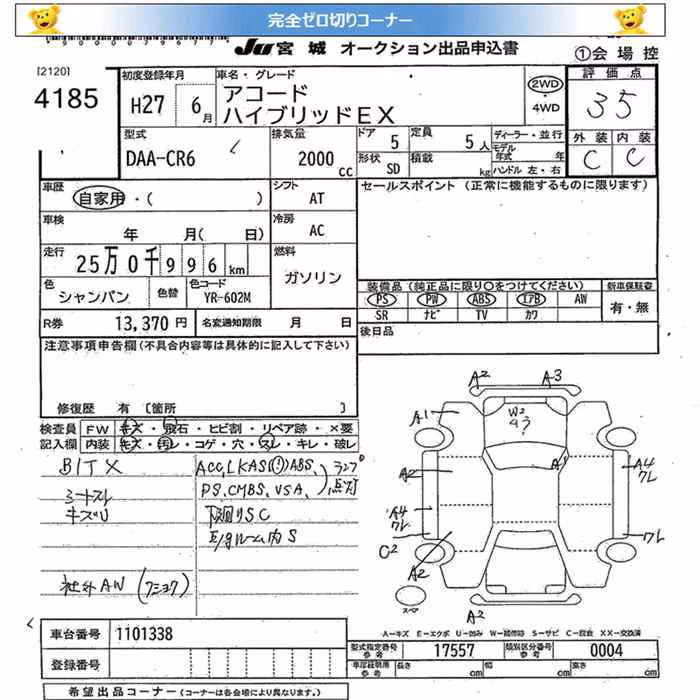 完全ゼロ切りコーナー
JU 宮城 オークション出品申込書
①会場控
[2120]
4185
初度登録年月
H27 6月
車名・グレード
アコード
ハイブリッドEX
2WD
4WD
評価点
35
型式
DAA-CR6
排気量
2000 cc
ドア 5
定員 5人
形状 SD
積載 kg
ディーラー・並行
モデル年式 年
ハンドル 左・右
外装 内装
C C
車歴
自家用・( )
シフト
AT
セールスポイント (正常に機能するものに限ります)
車検
年 月(日)
冷房
AC
走行
25万0千996km
燃料
ガソリン
色
シャンパン
色替
色コード
YR-602M
装備品(純正品に限り○をつけてください)
新車保証書
PS PW ABS エアB AW
有・無
SR ナビ TV カワ
R券 13,370円
名変通知期限 月 日
後日品
注意事項申告欄(不具合内容等は具体的に記入して下さい)
修復歴 有 〔箇所 〕
検査員 FW キズ・飛石・ヒビ割・リペア跡・×要
記入欄 内装 キズ・汚レ・コゲ・穴・スレ・キレ・破レ
BIT X
シートスレ
キズU
社外AW
ACC, LKAS(!)ABS、
PS、CMBS、VSA、
ランプ点灯
下回りSC
E/gルーム内S
A2 A3
A1
W2
A2
A1
A4
ワレ
A4
ワレ
ワレ
C2
A2
スペア
A2
A-キズ E-エクボ U-凹み W-補修跡 S-サビ C-腐食 XX-交換済
車台番号 1101338
登録番号
型式指定番号 参考 17557
類別区分番号 参考 0004
車庫証明用 参考 長さ 幅 高さ
希望出品コーナー (コーナーは各会場により異なります。)